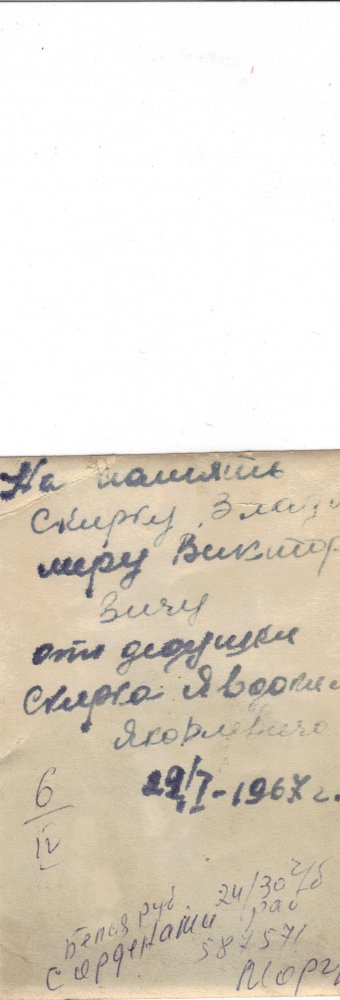 На память
Скирку Влади
миру Виктор
вичу
от дедушки
Скирка Явдоки
Яковлевича
29/I-1967 г.
6
IV
белая руб. 24/30 ч/б
с орденами
587571
Морг